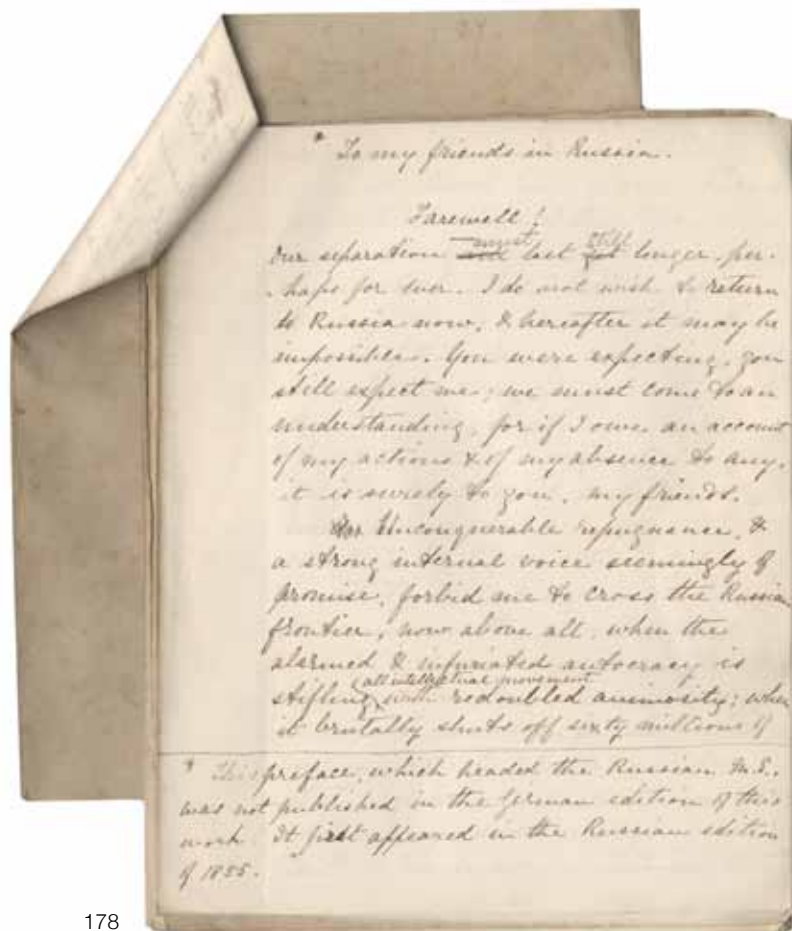 * To my friends in Russia.
Farewell!
Our separation must last still longer, per-
haps for ever. I do not wish to return
to Russia now, & hereafter it may be
impossible. You were expecting, you
still expect me; we must come to an
understanding, for if I owe an account
of my actions & of my absence to any,
it is surely to you, my friends.
Unconquerable repugnance, &
a strong internal voice seemingly of
promise, forbid me to cross the Russian
frontier, now above all, when the
alarmed & infuriated autocracy is
stifling all intellectual movement with redoubled animosity; when
it brutally shuts off sixty millions of
* This preface, which headed the Russian M.S.,
was not published in the German edition of this
work. It first appeared in the Russian edition
of 1855.
178